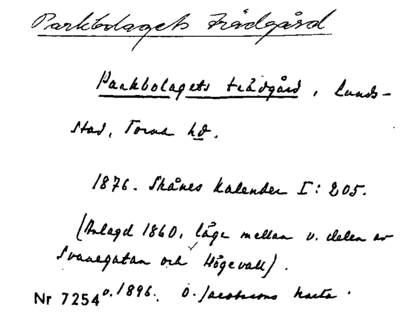 Parkbolagets trädgård
Parkbolagets trädgård, Lunds-
stad, Torna hd.
1876. Skånes kalender I: 205.
(Anlagd 1860, låge mellan v. delen av
Svanegatan och Högevall).
Nr 7254 v. 1896. O. Jacobsons karta.